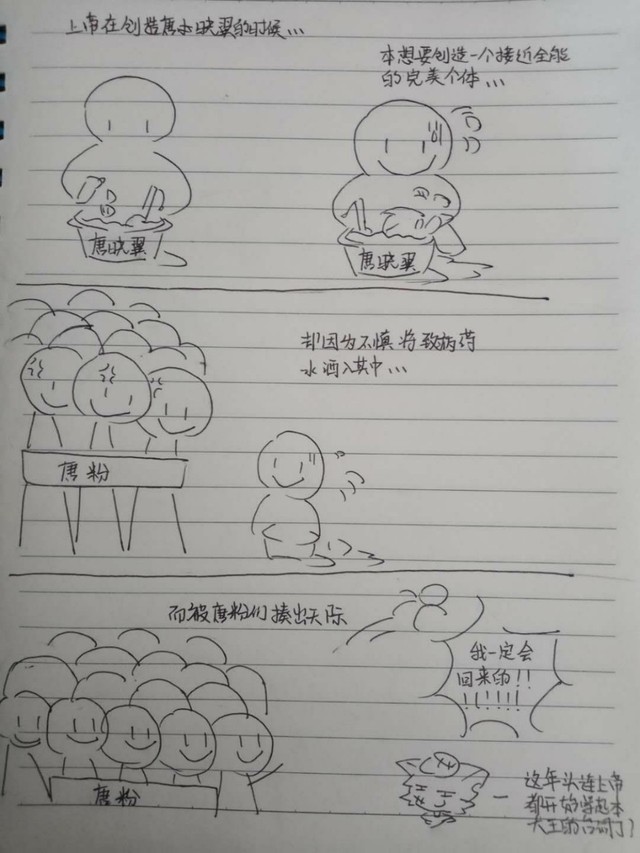 上帝在创造唐晓翼的时候...
本想要创造一个接近全能
的完美个体...
唐晓翼
唐晓翼
却因为不慎将致病药
水洒入其中...
唐粉
而被唐粉们揍出天际
我一定会
回来的!!
!!!!!!
唐粉
这年头连上帝
都开始学起本
大王的台词了?